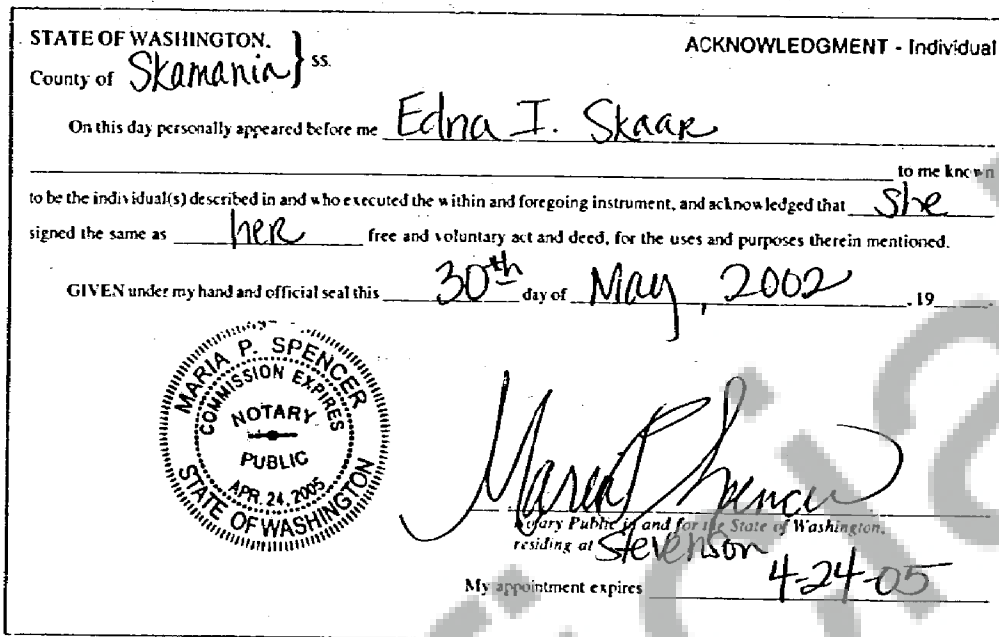 STATE OF WASHINGTON.
ACKNOWLEDGMENT - Individual
County of Skamania } ss.
On this day personally appeared before me Edna I. Skaar
to me known
to be the individual(s) described in and who executed the within and foregoing instrument, and acknowledged that she
signed the same as her free and voluntary act and deed, for the uses and purposes therein mentioned.
GIVEN under my hand and official seal this 30th day of May, 2002 , 19
MARIA P. SPENCER
COMMISSION EXPIRES
NOTARY
PUBLIC
APR. 24, 2005
STATE OF WASHINGTON
Maria P Spencer
Notary Public in and for the State of Washington,
residing at Stevenson
My appointment expires 4-24-05